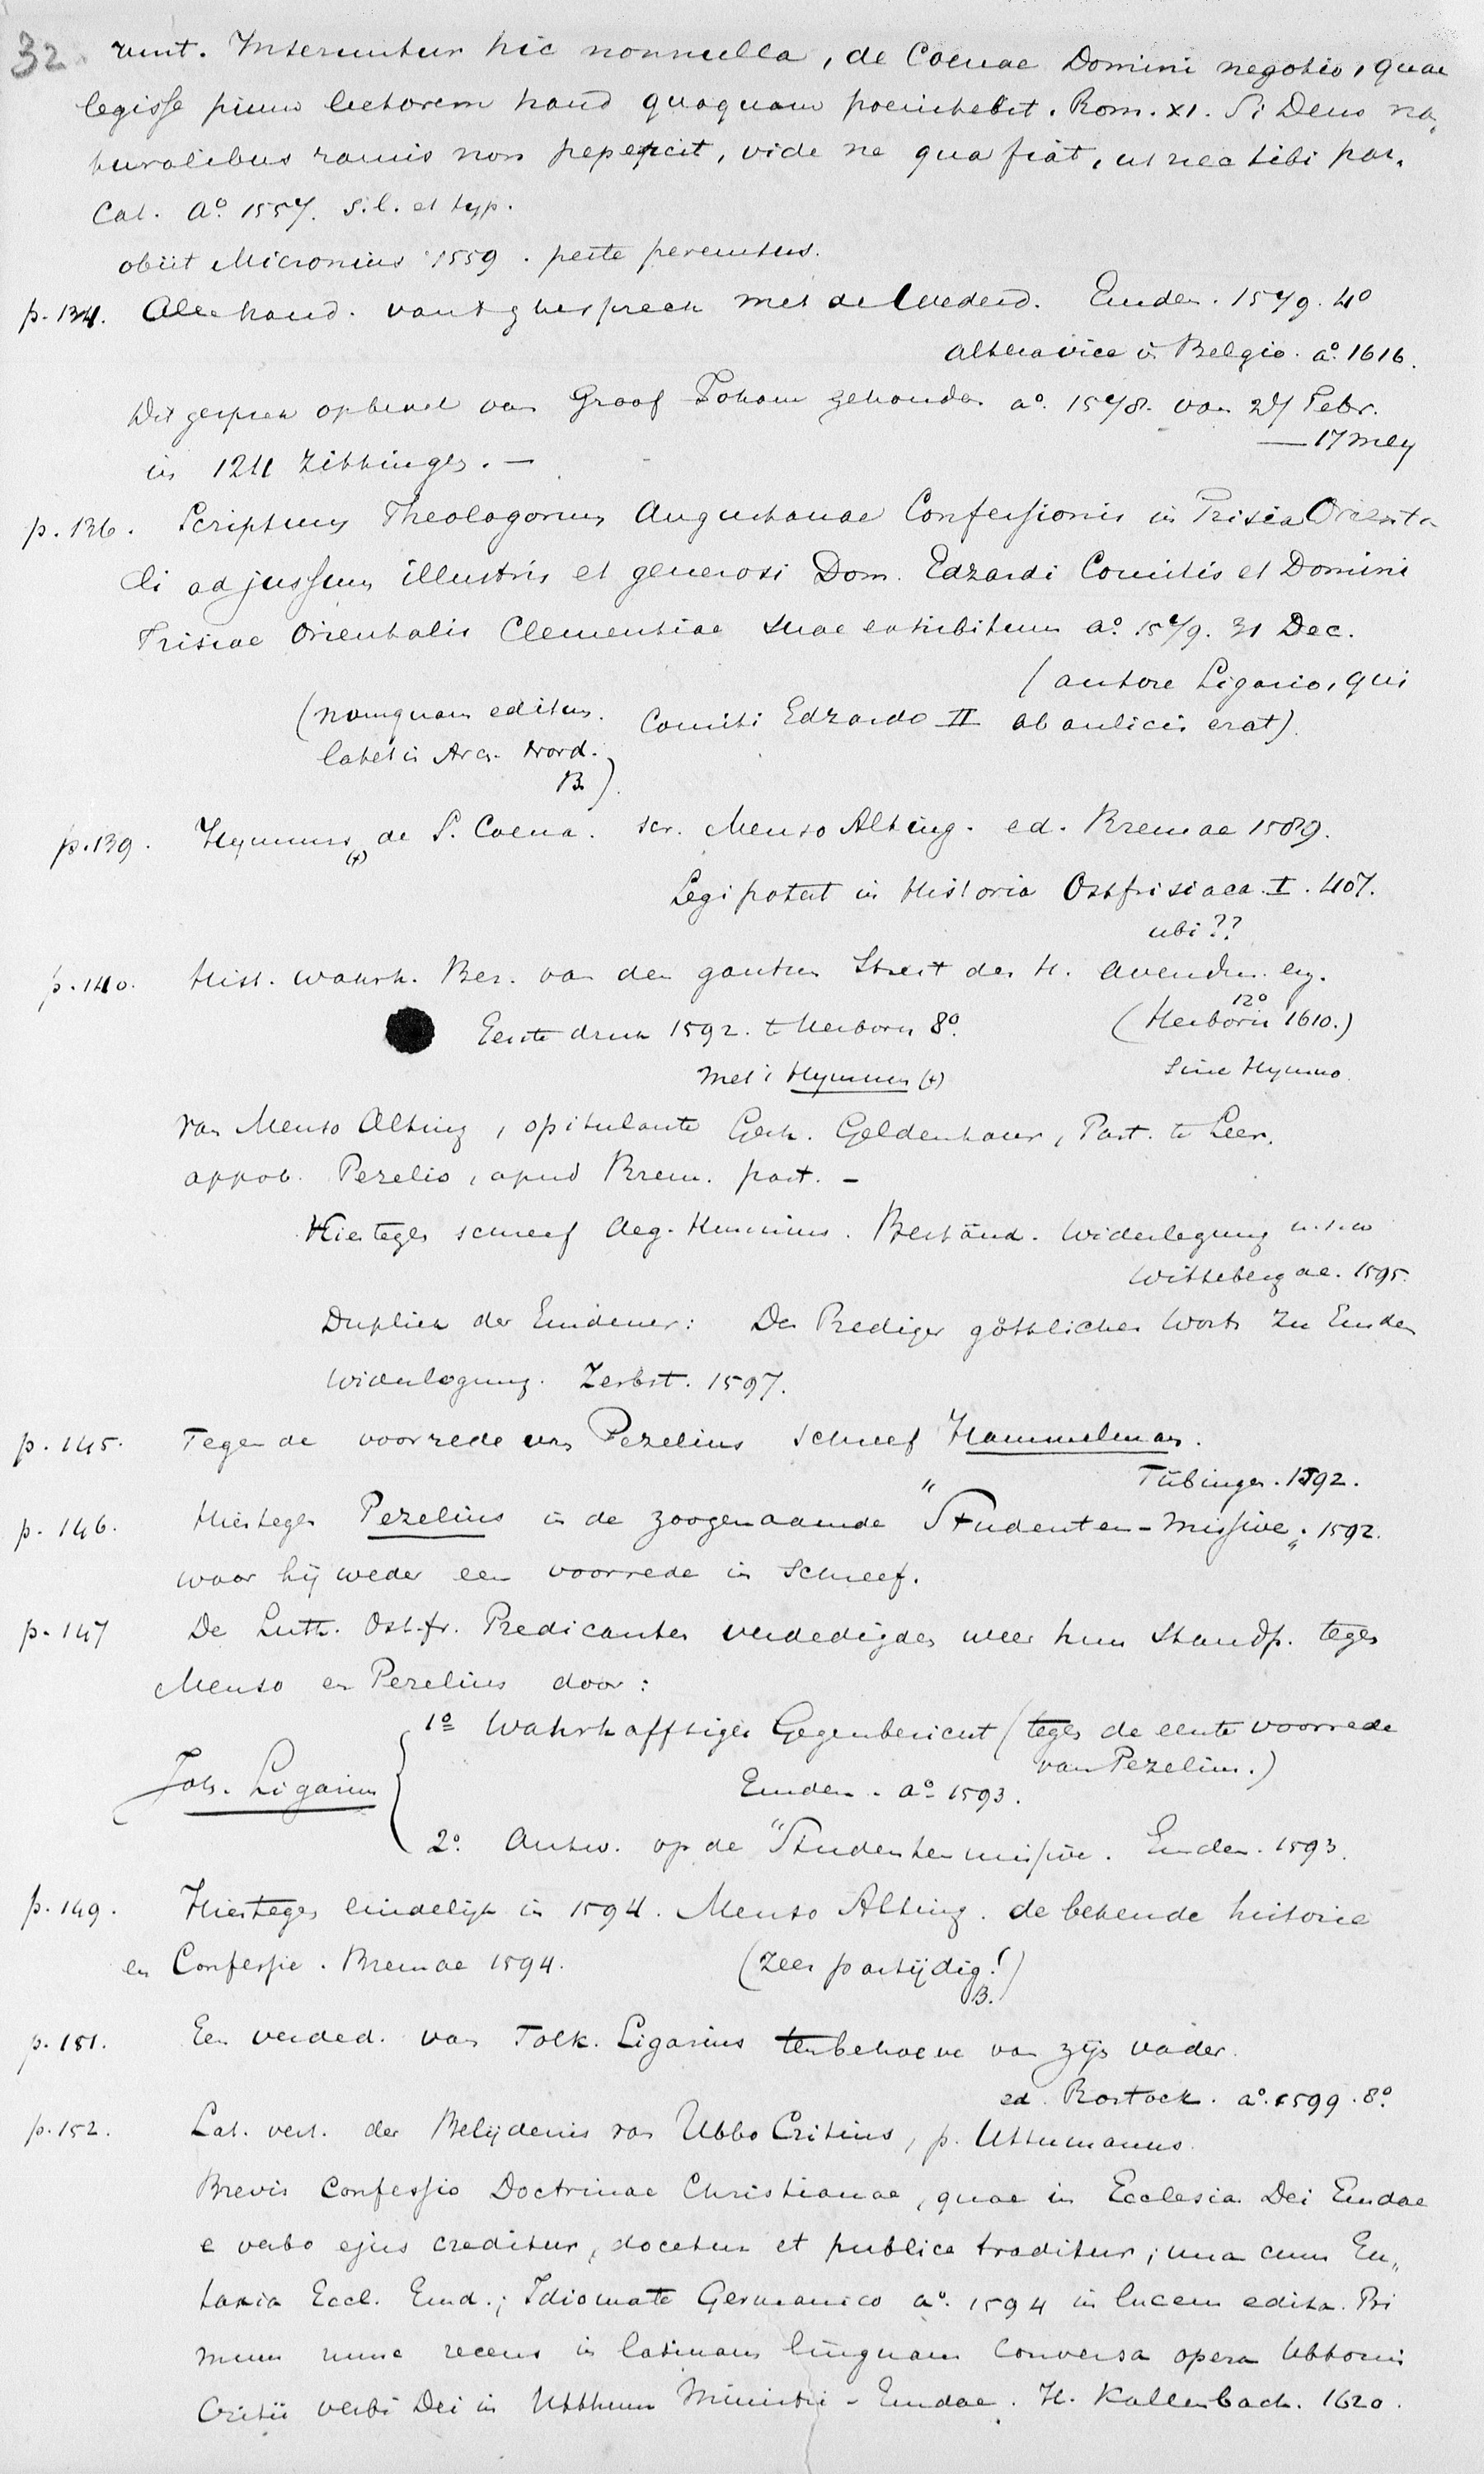 32. runt. Inseruntur hic nonnulla, de Coenae Domini negotio, quae
legisse pium lectorem haud quaquam poenitebit. Rom. XI. Si Deus na„
turalibus ramis non pepercit, vide ne qua fiat, ut nec tibi par„
cat. a° 1557. s.l. et typ.
obiit Micronius 1559. peste peremtus.
p. 134. All handl. vant ghesprech met de Wederd. Emden. 1579. 4°
altera vice v. Belgio. a° 1616.
Dit gesprek op bevel van Graaf Johan gehouden a° 1578. van 27 Febr.
— 17 Mey
in 124 zittingen. —
p. 136. Scriptum Theologorum Augustanae Confessionis in Frisia Orienta
li ad jussum illustris et generosi Dom. Edzardi Comitis et Domini
Frisiae Orientalis Clementiae suae exhibitum a° 1579. 31 Dec.
(autore Ligario, qui
(nonquam editum. Comiti Edzardo II ab aulicis erat).
latet in Arch. Nord.
B.)
p. 139. Hymnus (+) de S. Coena. scr. Menso Alting. ed. Bremae 1589.
Legi potest in Historia Ostfrisiaca. I. 407.
ubi??
p. 140. Hist. wahrh. Ber. van den gantzen Streit des H. Avendm. enz.
12°
Eerste druk 1592. te Herborn 8°. (Herborn 1610.)
met 's Hymnus (+) sine Hymno.
van Menso Alting, opitulante Gerh. Geldenhauer, Past. te Leer.
approb. Pezelio, apud Brem. past. —
Hiertegen schreef Aeg. Hunnius. Beständ. Widerlegung u.s.w
Wittebergae. 1595.
Dupliek der Emdener: Der Prediger göttliches Worts zu Emden
Widerlegung. Zerbst. 1597.
p. 145. Tegen de voorrede van Pezelius schreef Hammelman.
Tübingen. 1592.
p. 146. Hiertegen Pezelius in de zoogenaamde "Studenten-Missive„. 1592.
waar hij weder een voorrede in schreef.
p. 147 De Luth. Ost-fr. Predicanten verdedigden weer hun standp. tegen
Menso en Pezelius door:
1° Wahrhafftiger Gegenbericht (tegen de eerste voorrede
van Pezelius.)
Joh. Ligarius Emden. a° 1593.
2° Antw. op de "Studentenmissive. Emden. 1593.
p. 149. Hiertegen eindelijk in 1594. Menso Alting. de bekende historie
en Confessie. Bremae 1594. (zeer partijdig!)
B.
p. 151. Een verded. van Folk. Ligarius ten behoeve van zijn vader.
ed. Rostock. a° 1599. 8°.
p. 152. Lat. vert. der Belijdenis van Ubbo Critius, p. Uttumanus.
Brevis Confessio Doctrinae Christianae, quae in Ecclesia Dei Emdae
e verbo ejus creditur, docetur et publice traditur; una cum Eu„
taxia Eccl. Emd.; Idiomate Germanico a° 1594 in lucem edita. Pri
mum nunc recens in latinam linguam conversa opera Ubbonis
Critii verbi Dei in Uttum Ministri - Emdae. H. Kallenbach. 1620.